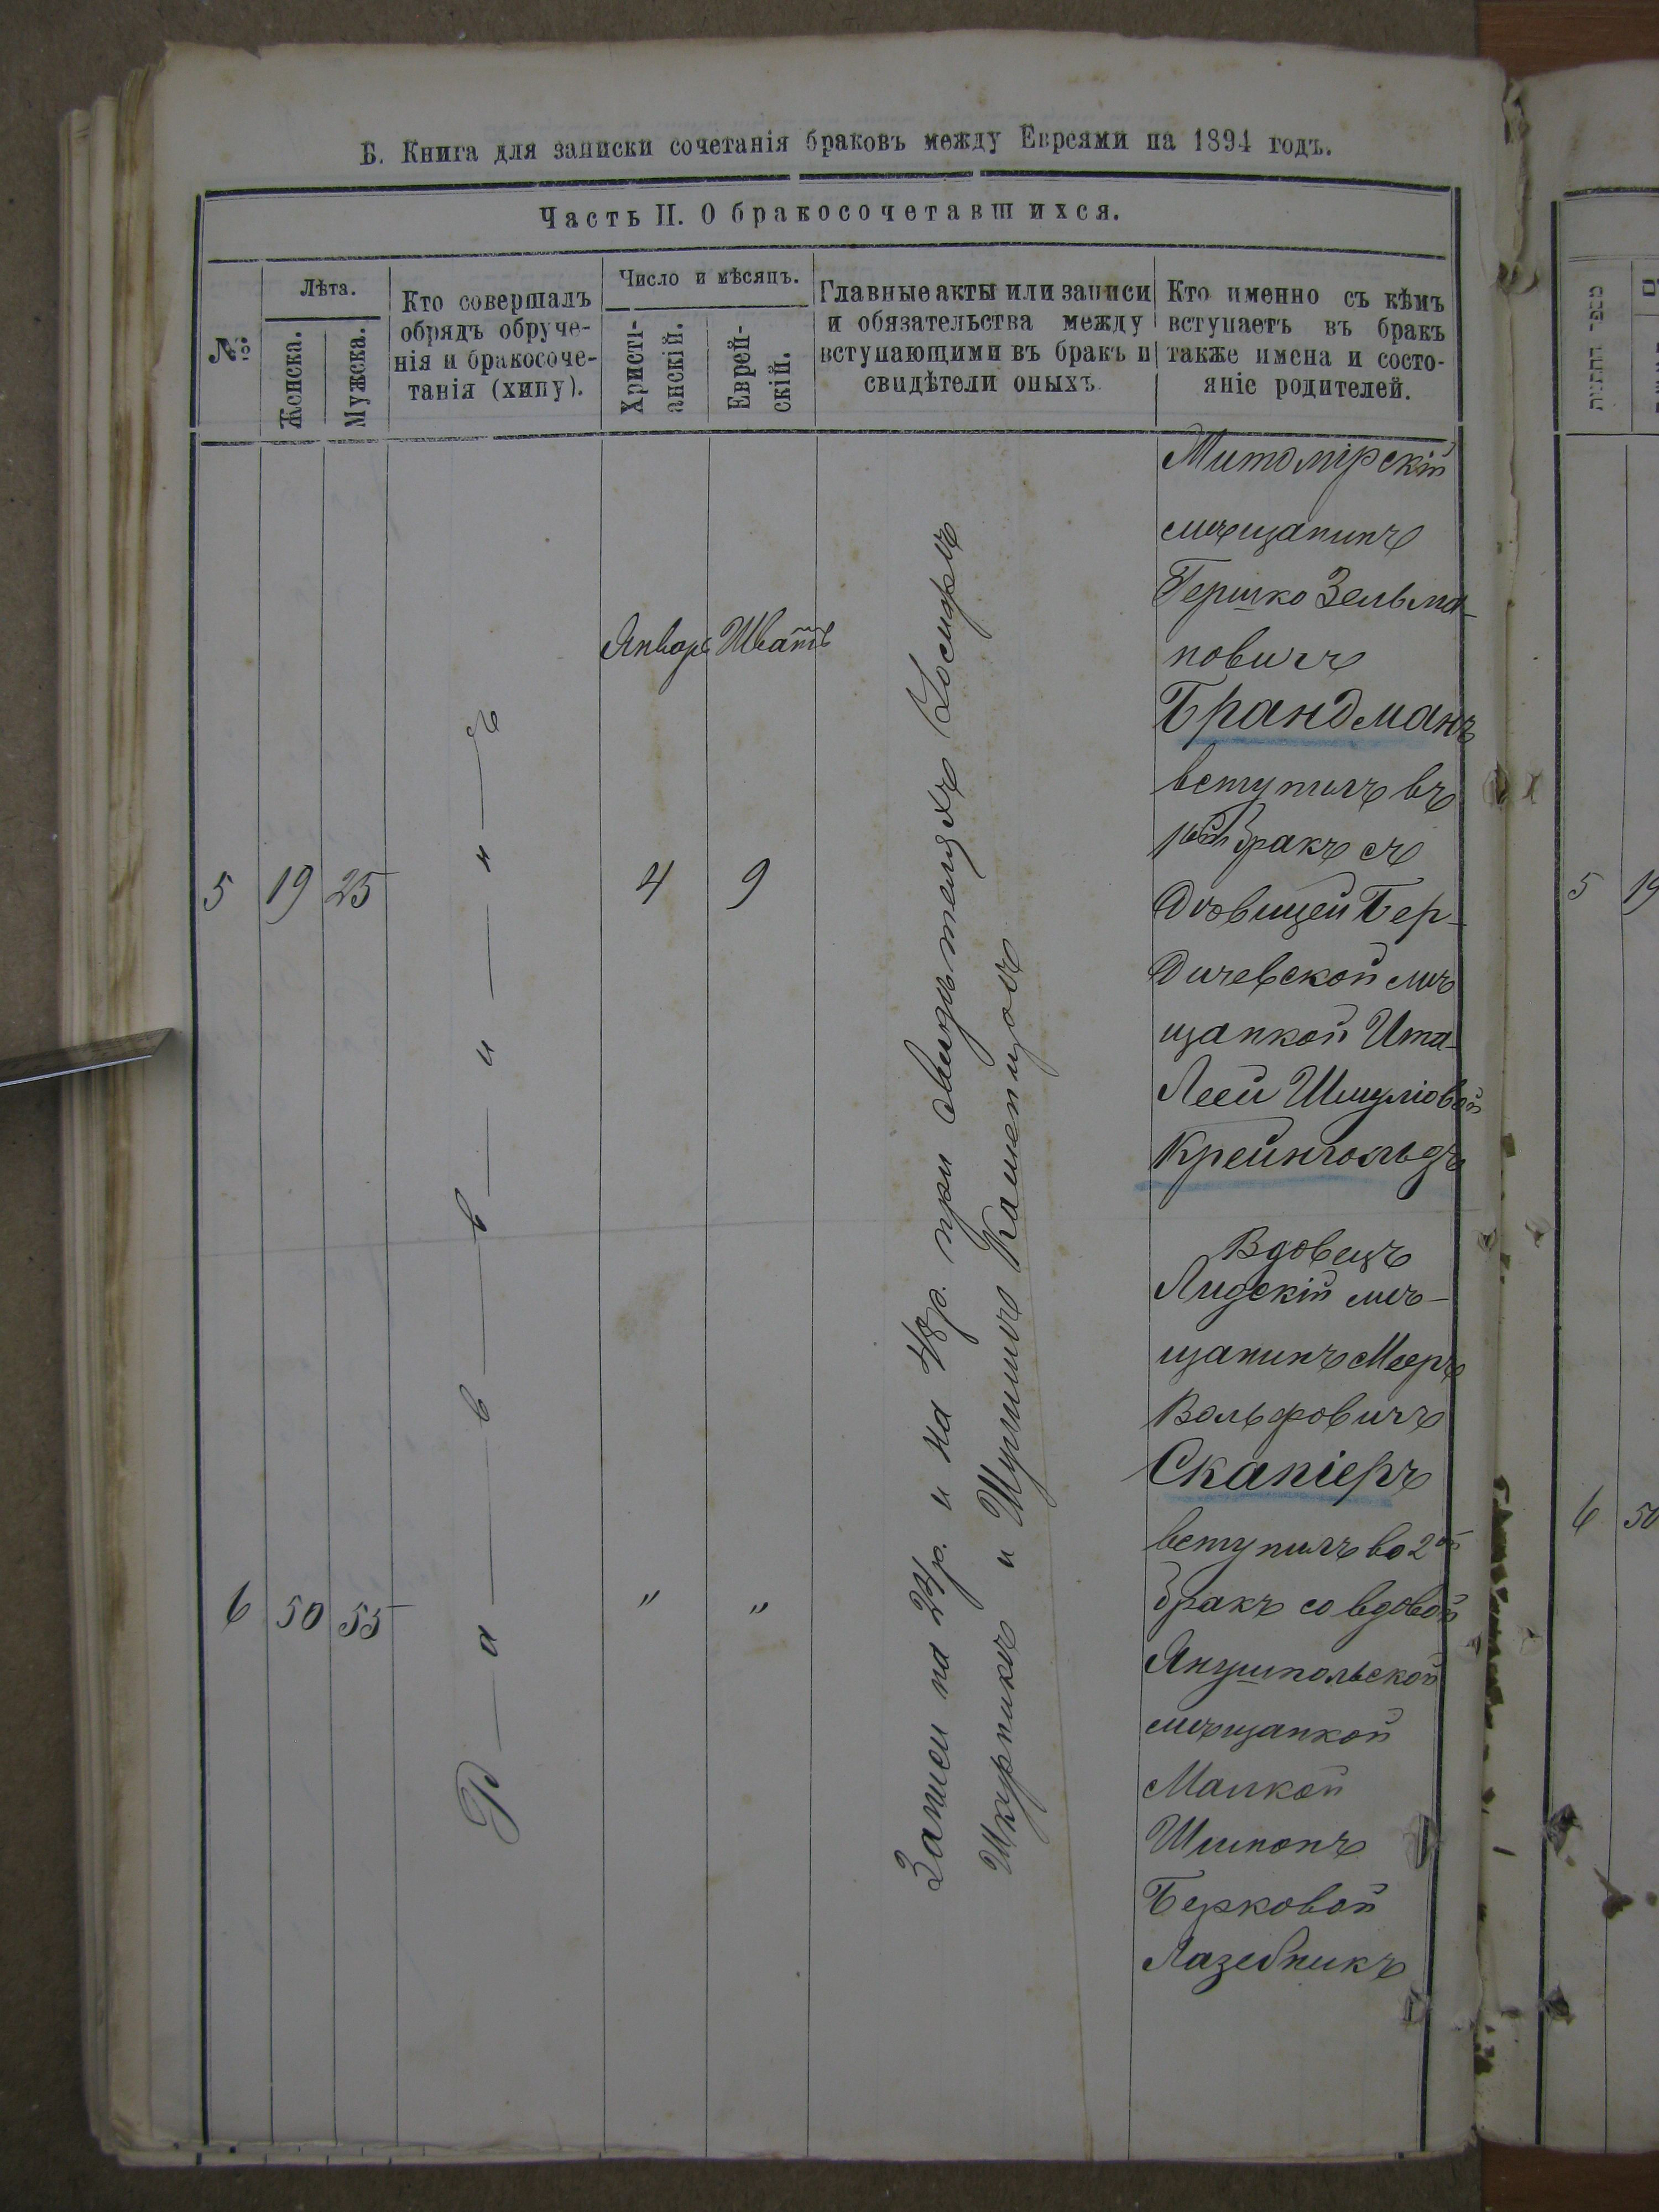 Б. Книга для записки сочетанія браковъ между Евреями на 1894 годъ.
Часть II. О бракосочетавшихся.
№
Лѣта.
Женска.
Мужска.
Кто совершалъ
обрядъ обруче-
нія и бракосоче-
танія (хипу).
Число и мѣсяцъ.
Христі-
анскій.
Еврей-
скій.
Главные акты или записи
и обязательства между
вступающими въ бракъ и
свидѣтели оныхъ.
Кто именно съ кѣмъ
вступаетъ въ бракъ
также имена и состо-
яніе родителей.
5
19
25
Раввинъ
Январь
Шватъ
4
9
Записи на 24р. и на 48р. при свидѣтеляхъ Іосифѣ
Шкурникѣ и Шулимѣ Каменицолѣ
Житомірскій
мѣщанинъ
Гершко Зельма-
новичъ
Брандманъ
вступилъ въ
1ый бракъ съ
дѣвицей Бер-
дичевской мѣ
щанкой Ита-
Леей Шмуліовой
Крейнгольдъ
6
50
55
"
"
Вдовецъ
Лидскій мѣ-
щанинъ Мееръ
Вольфовичъ
Скапіеръ
вступилъ во 2ой
бракъ со вдовой
Янушпольской
мѣщанкой
Малкой
Берковой
Лазебникъ
מספר החתנות
5
19
6
50